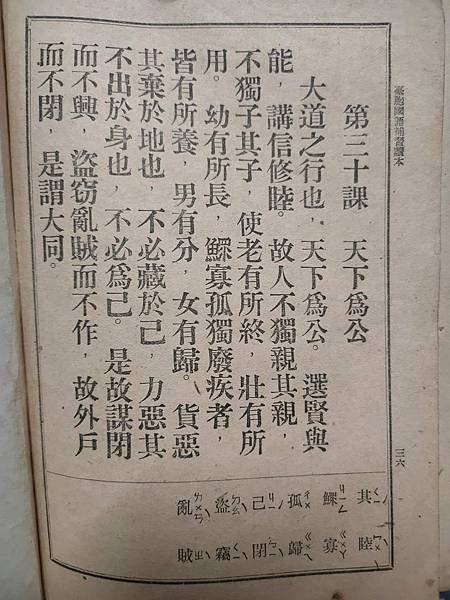 臺胞國語補習讀本
三六
第三十課　天下爲公
大道之行也，天下爲公。選賢與
能，講信修睦。故人不獨親其親，
不獨子其子，使老有所終，壯有所
用。幼有所長，鰥寡孤獨廢疾者，
皆有所養，男有分，女有歸。貨惡
其棄於地也，不必藏於己，力惡其
不出於身也，不必爲己。是故謀閉
而不興，盜窃亂賊而不作，故外戶
而不閉，是謂大同。
其ㄑㄧˊ　睦ㄇㄨˋ
鰥　寡ㄍㄨㄚˇ
孤ㄍㄨ　歸ㄍㄨㄟ
己ㄐㄧˇ　閉ㄅㄧˋ
盜ㄉㄠˋ　竊
亂ㄌㄨㄢˋ　賊